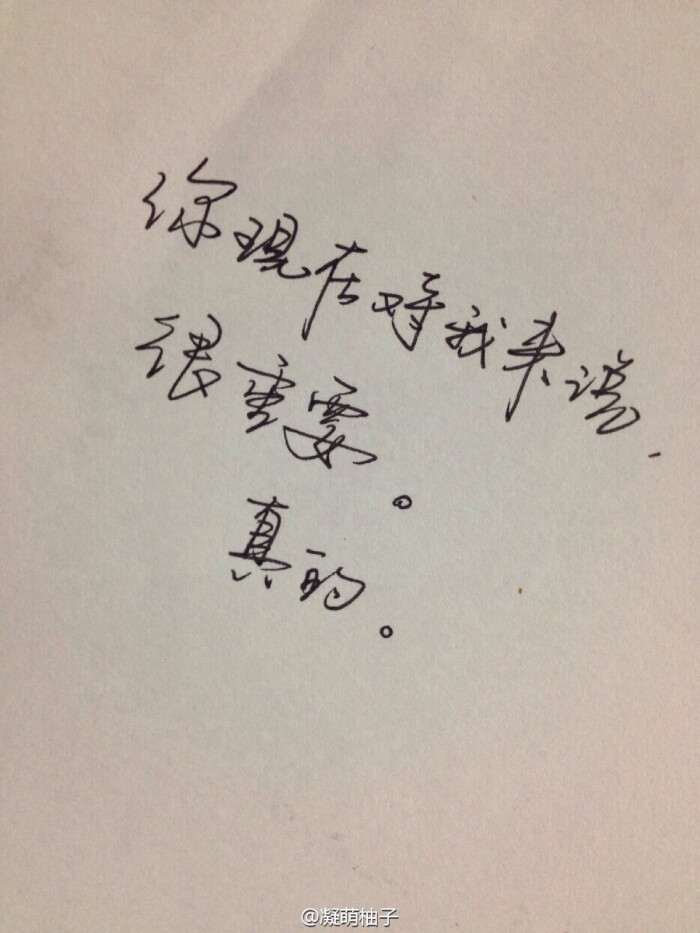 你现在对我来说，
很重要。
真的。
@凝萌柚子